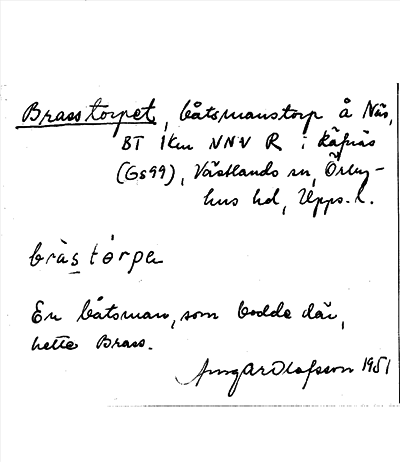 Brasstorpet, båtsmanstorp å Näs,
BT 1km NNV R i Räfnäs
(Gs99), Västlands sn, Örby-
hus hd, Upps. l.
bràstórpa
En båtsman, som bodde där,
hette Brass.
Olofsson 1951